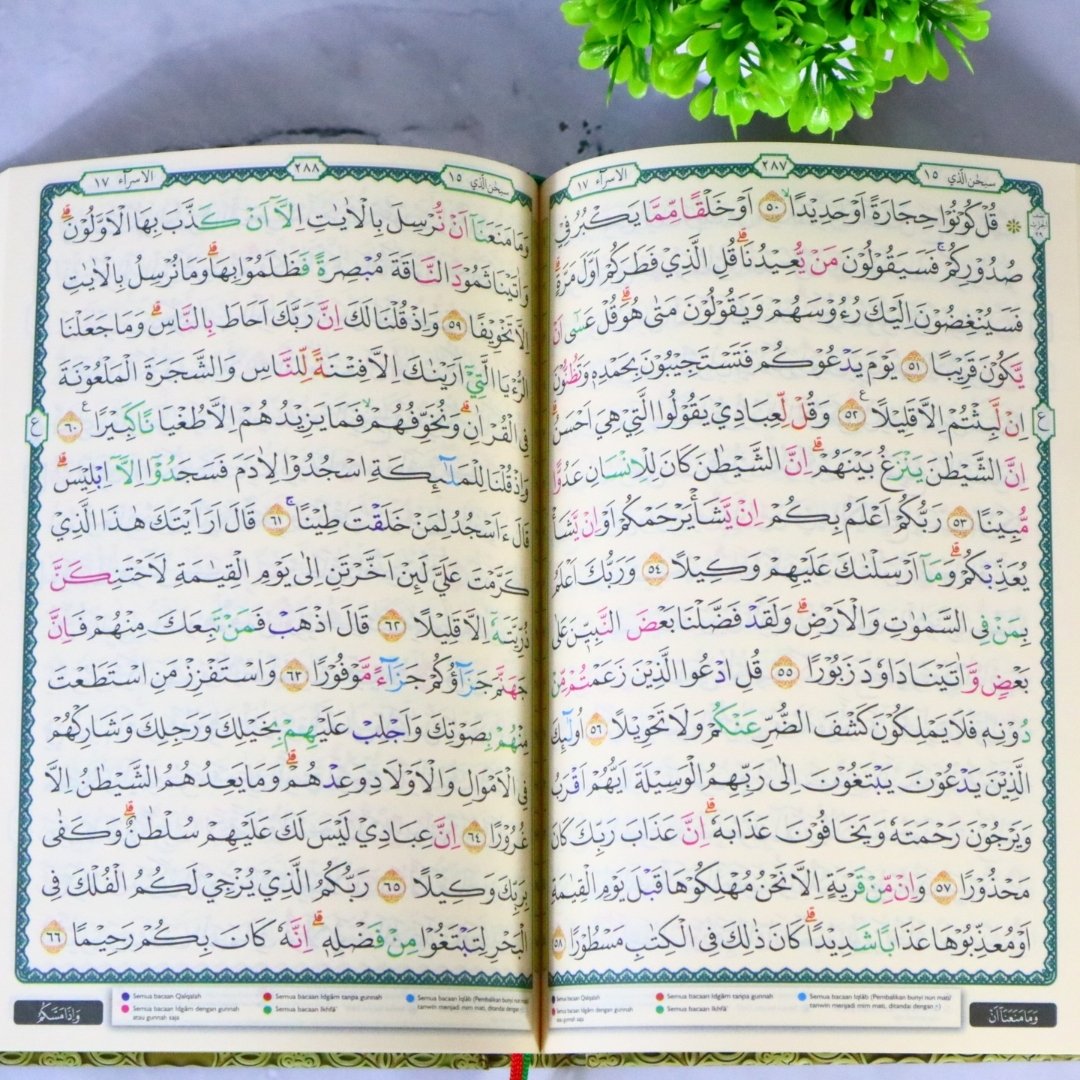 سبحن الذي ١٥
٢٨٧
الاسراء ١٧
۞ قُلْ كُوْنُوْا حِجَارَةً اَوْ حَدِيْدًا ۙ ٥٠ اَوْ خَلْقًا مِّمَّا يَكْبُرُ فِيْ
صُدُوْرِكُمْ ۚ فَسَيَقُوْلُوْنَ مَنْ يُّعِيْدُنَا ۗ قُلِ الَّذِيْ فَطَرَكُمْ اَوَّلَ مَرَّةٍ ۗ
فَسَيُنْغِضُوْنَ اِلَيْكَ رُءُوْسَهُمْ وَيَقُوْلُوْنَ مَتٰى هُوَ ۗ قُلْ عَسٰٓى اَنْ
يَّكُوْنَ قَرِيْبًا ٥١ يَوْمَ يَدْعُوْكُمْ فَتَسْتَجِيْبُوْنَ بِحَمْدِهٖ وَتَظُنُّوْنَ
اِنْ لَّبِثْتُمْ اِلَّا قَلِيْلًا ࣖ ٥٢ وَقُلْ لِّعِبَادِيْ يَقُوْلُوا الَّتِيْ هِيَ اَحْسَنُ ۗ
اِنَّ الشَّيْطٰنَ يَنْزَغُ بَيْنَهُمْ ۗ اِنَّ الشَّيْطٰنَ كَانَ لِلْاِنْسَانِ عَدُوًّا
مُّبِيْنًا ٥٣ رَبُّكُمْ اَعْلَمُ بِكُمْ اِنْ يَّشَأْ يَرْحَمْكُمْ اَوْ اِنْ يَّشَأْ
يُعَذِّبْكُمْ ۗ وَمَآ اَرْسَلْنٰكَ عَلَيْهِمْ وَكِيْلًا ٥٤ وَرَبُّكَ اَعْلَمُ
بِمَنْ فِى السَّمٰوٰتِ وَالْاَرْضِ ۗ وَلَقَدْ فَضَّلْنَا بَعْضَ النَّبِيّٖنَ عَلٰى
بَعْضٍ وَّاٰتَيْنَا دَاوٗدَ زَبُوْرًا ٥٥ قُلِ ادْعُوا الَّذِيْنَ زَعَمْتُمْ مِّنْ
دُوْنِهٖ فَلَا يَمْلِكُوْنَ كَشْفَ الضُّرِّ عَنْكُمْ وَلَا تَحْوِيْلًا ٥٦ اُولٰۤىِٕكَ
الَّذِيْنَ يَدْعُوْنَ يَبْتَغُوْنَ اِلٰى رَبِّهِمُ الْوَسِيْلَةَ اَيُّهُمْ اَقْرَبُ
وَيَرْجُوْنَ رَحْمَتَهٗ وَيَخَافُوْنَ عَذَابَهٗ ۗ اِنَّ عَذَابَ رَبِّكَ كَانَ
مَحْذُوْرًا ٥٧ وَاِنْ مِّنْ قَرْيَةٍ اِلَّا نَحْنُ مُهْلِكُوْهَا قَبْلَ يَوْمِ الْقِيٰمَةِ
اَوْ مُعَذِّبُوْهَا عَذَابًا شَدِيْدًا ۗ كَانَ ذٰلِكَ فِى الْكِتٰبِ مَسْطُوْرًا ٥٨
ع
Semua bacaan Qalqalah
Semua bacaan Idgām dengan gunnah atau gunnah saja
Semua bacaan Idgām tanpa gunnah
Semua bacaan Ikhfā'
Semua bacaan Iqlāb (Pembalikan bunyi nun mati/
tanwin menjadi mim mati, ditandai dengan م)
وَمَا مَنَعَنَآ اَنْ
سبحن الذي ١٥
٢٨٨
الاسراء ١٧
وَمَا مَنَعَنَآ اَنْ نُّرْسِلَ بِالْاٰيٰتِ اِلَّآ اَنْ كَذَّبَ بِهَا الْاَوَّلُوْنَ ۗ
وَاٰتَيْنَا ثَمُوْدَ النَّاقَةَ مُبْصِرَةً فَظَلَمُوْا بِهَا ۗ وَمَا نُرْسِلُ بِالْاٰيٰتِ
اِلَّا تَخْوِيْفًا ٥٩ وَاِذْ قُلْنَا لَكَ اِنَّ رَبَّكَ اَحَاطَ بِالنَّاسِ ۗ وَمَا جَعَلْنَا
الرُّءْيَا الَّتِيْٓ اَرَيْنٰكَ اِلَّا فِتْنَةً لِّلنَّاسِ وَالشَّجَرَةَ الْمَلْعُوْنَةَ
فِى الْقُرْاٰنِ ۗ وَنُخَوِّفُهُمْ ۙ فَمَا يَزِيْدُهُمْ اِلَّا طُغْيَانًا كَبِيْرًا ࣖ ٦٠
وَاِذْ قُلْنَا لِلْمَلٰۤىِٕكَةِ اسْجُدُوْا لِاٰدَمَ فَسَجَدُوْٓا اِلَّآ اِبْلِيْسَ ۗ
قَالَ ءَاَسْجُدُ لِمَنْ خَلَقْتَ طِيْنًا ۚ ٦١ قَالَ اَرَاَيْتَكَ هٰذَا الَّذِيْ
كَرَّمْتَ عَلَيَّ لَىِٕنْ اَخَّرْتَنِ اِلٰى يَوْمِ الْقِيٰمَةِ لَاَحْتَنِكَنَّ
ذُرِّيَّتَهٗٓ اِلَّا قَلِيْلًا ٦٢ قَالَ اذْهَبْ فَمَنْ تَبِعَكَ مِنْهُمْ فَاِنَّ
جَهَنَّمَ جَزَاۤؤُكُمْ جَزَاۤءً مَّوْفُوْرًا ٦٣ وَاسْتَفْزِزْ مَنِ اسْتَطَعْتَ
مِنْهُمْ بِصَوْتِكَ وَاَجْلِبْ عَلَيْهِمْ بِخَيْلِكَ وَرَجِلِكَ وَشَارِكْهُمْ
فِى الْاَمْوَالِ وَالْاَوْلَادِ وَعِدْهُمْ ۗ وَمَا يَعِدُهُمُ الشَّيْطٰنُ اِلَّا
غُرُوْرًا ٦٤ اِنَّ عِبَادِيْ لَيْسَ لَكَ عَلَيْهِمْ سُلْطٰنٌ ۗ وَكَفٰى
بِرَبِّكَ وَكِيْلًا ٦٥ رَبُّكُمُ الَّذِيْ يُزْجِيْ لَكُمُ الْفُلْكَ فِى
الْبَحْرِ لِتَبْتَغُوْا مِنْ فَضْلِهٖ ۗ اِنَّهٗ كَانَ بِكُمْ رَحِيْمًا ٦٦
ع
Semua bacaan Qalqalah
Semua bacaan Idgām dengan gunnah
atau gunnah saja
Semua bacaan Idgām tanpa gunnah
Semua bacaan Ikhfā'
Semua bacaan Iqlāb (Pembalikan bunyi nun mati/
tanwin menjadi mim mati, ditandai dengan م)
وَاِذَا مَسَّكُمُ